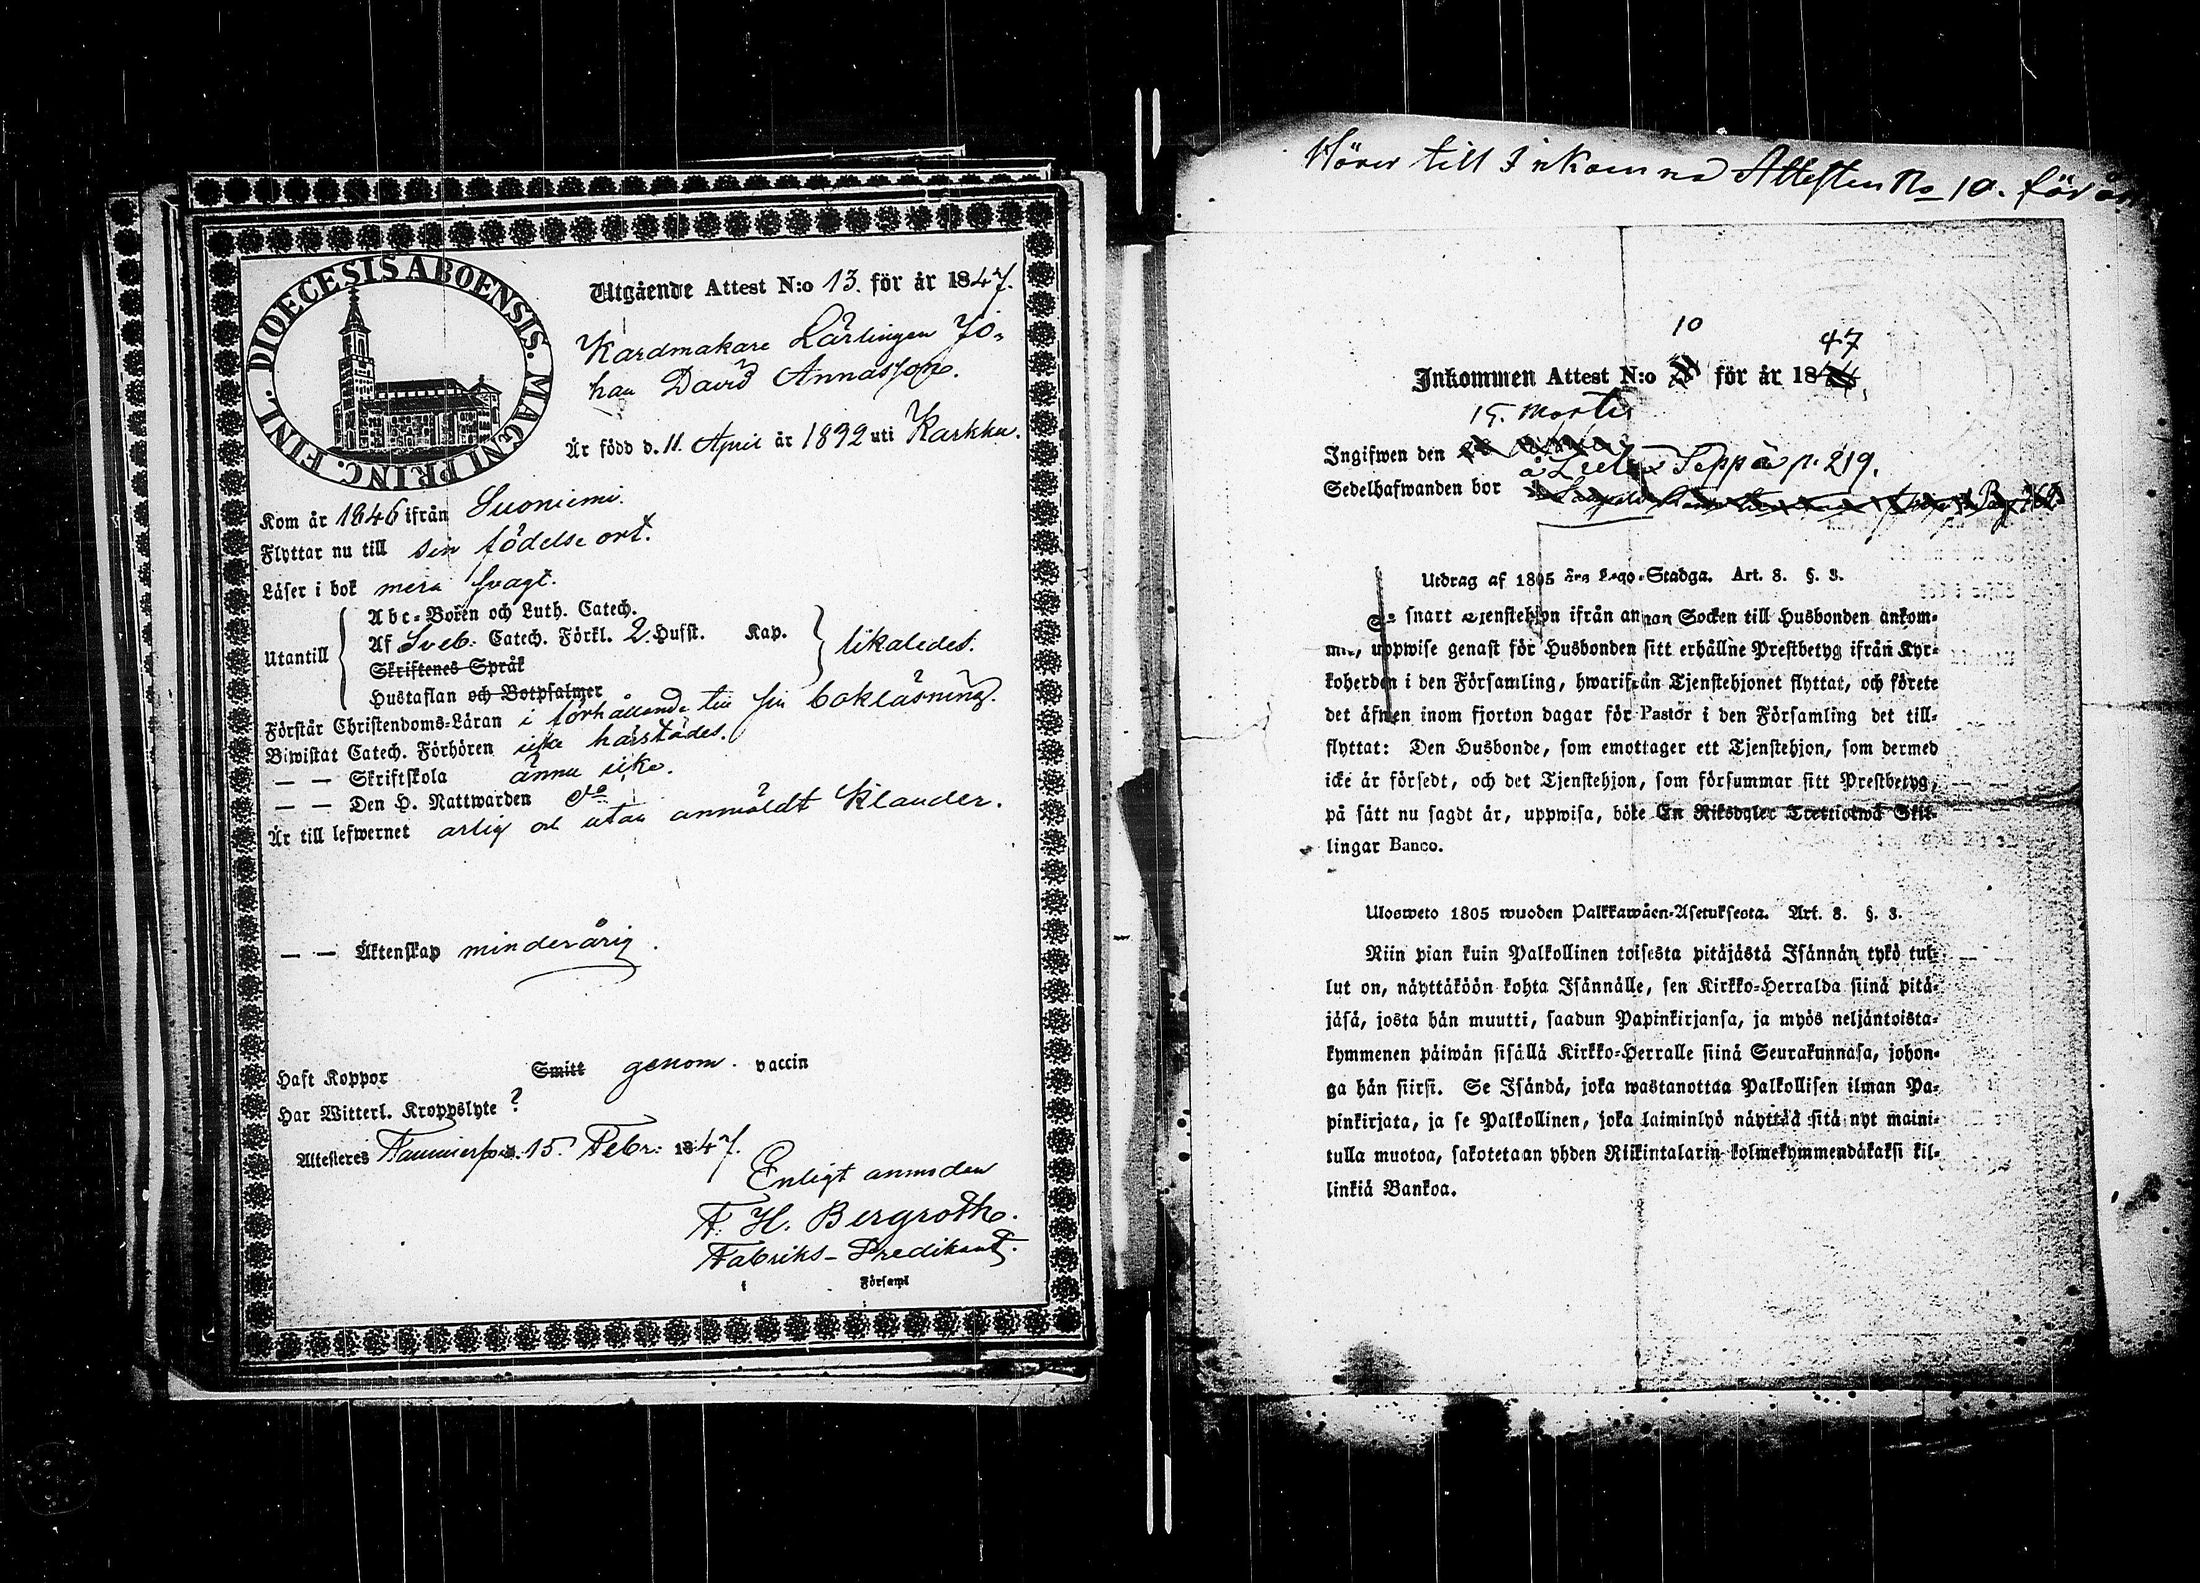 DIOECESIS ABOENSIS. MAGNI PRINC. FINL.
Utgående Attest N:o 13. för år 1847.
Kardmakare Lärlingen Jo-
han David Annasson.
Är född d. 11 April år 1832 uti Karkku.
Kom år 1846 ifrån Suoniemi.
Flyttar nu till sin födelse ort.
Läser i bok mera svagt.
Utantill
Abc-Boken och Luth. Catech.
Af Sveb. Catech. Förkl. 2. Husst. Kap.
Skriftenes Språk
Hustaflan och Botpsalmer
likaledes.
Förstår Christendoms-Läran i förhållande till sin bokläsning.
Biwistat Catech. Förhören icke härstädes.
— — Skriftskola ännu icke.
— — Den H. Nattwarden do
Är till lefwernet ärlig och utan anmäldt klander.
— — Äktenskap minderårig.
Haft Koppor Smitt genom vaccin
Har Witterl. Kroppslyte ?
Attesteres Tammerfors. 15 Febr: 1847.
Enligt
F. H. Bergroth.
Fabriks-Predikant.
i Församl
Hörer till Inkomna Attesten No 10. för år
10 47
Inkommen Attest N:o för år 18
15. Martii
Ingifwen den
å Seppä p. 219.
Sedelhafwanden bor
Utdrag af 1805 års Lego-Stadga. Art. 8. §. 3.
Så snart Tjenstehjon ifrån annan Socken till Husbonden ankom-
mit, uppwise genast för Husbonden sitt erhållne Prestbetyg ifrån Kyr-
koherden i den Församling, hwarifrån Tjenstehjonet flyttat, och förete
det äfwen inom fjorton dagar för Pastor i den Församling det till-
flyttat: Den Husbonde, som emottager ett Tjenstehjon, som dermed
icke är försedt, och det Tjenstehjon, som försummar sitt Prestbetyg,
på sätt nu sagdt är, uppwisa, böte En Riksdaler Trettiotwå Skil-
lingar Banco.
Ulosweto 1805 wuoden Palkkawäen-Asetuksesta. Art. 8. §. 3.
Niin pian kuin Palkollinen toisesta pitäjästä Isännän tykö tul-
lut on, näyttäköön kohta Isännälle, sen Kirkko-Herralda siinä pitä-
jäsä, josta hän muutti, saadun Papinkirjansa, ja myös neljäntoista-
kymmenen päiwän sisällä Kirkko-Herralle siinä Seurakunnasa, johon-
ga hän siirsi. Se Isändä, joka wastanottaa Palkollisen ilman Pa-
pinkirjata, ja se Palkollinen, joka laiminlyö näyttää sitä nyt maini-
tulla muotoa, sakotetaan yhden Riikintalarin kolmekymmendäkaksi kil-
linkiä Bankoa.